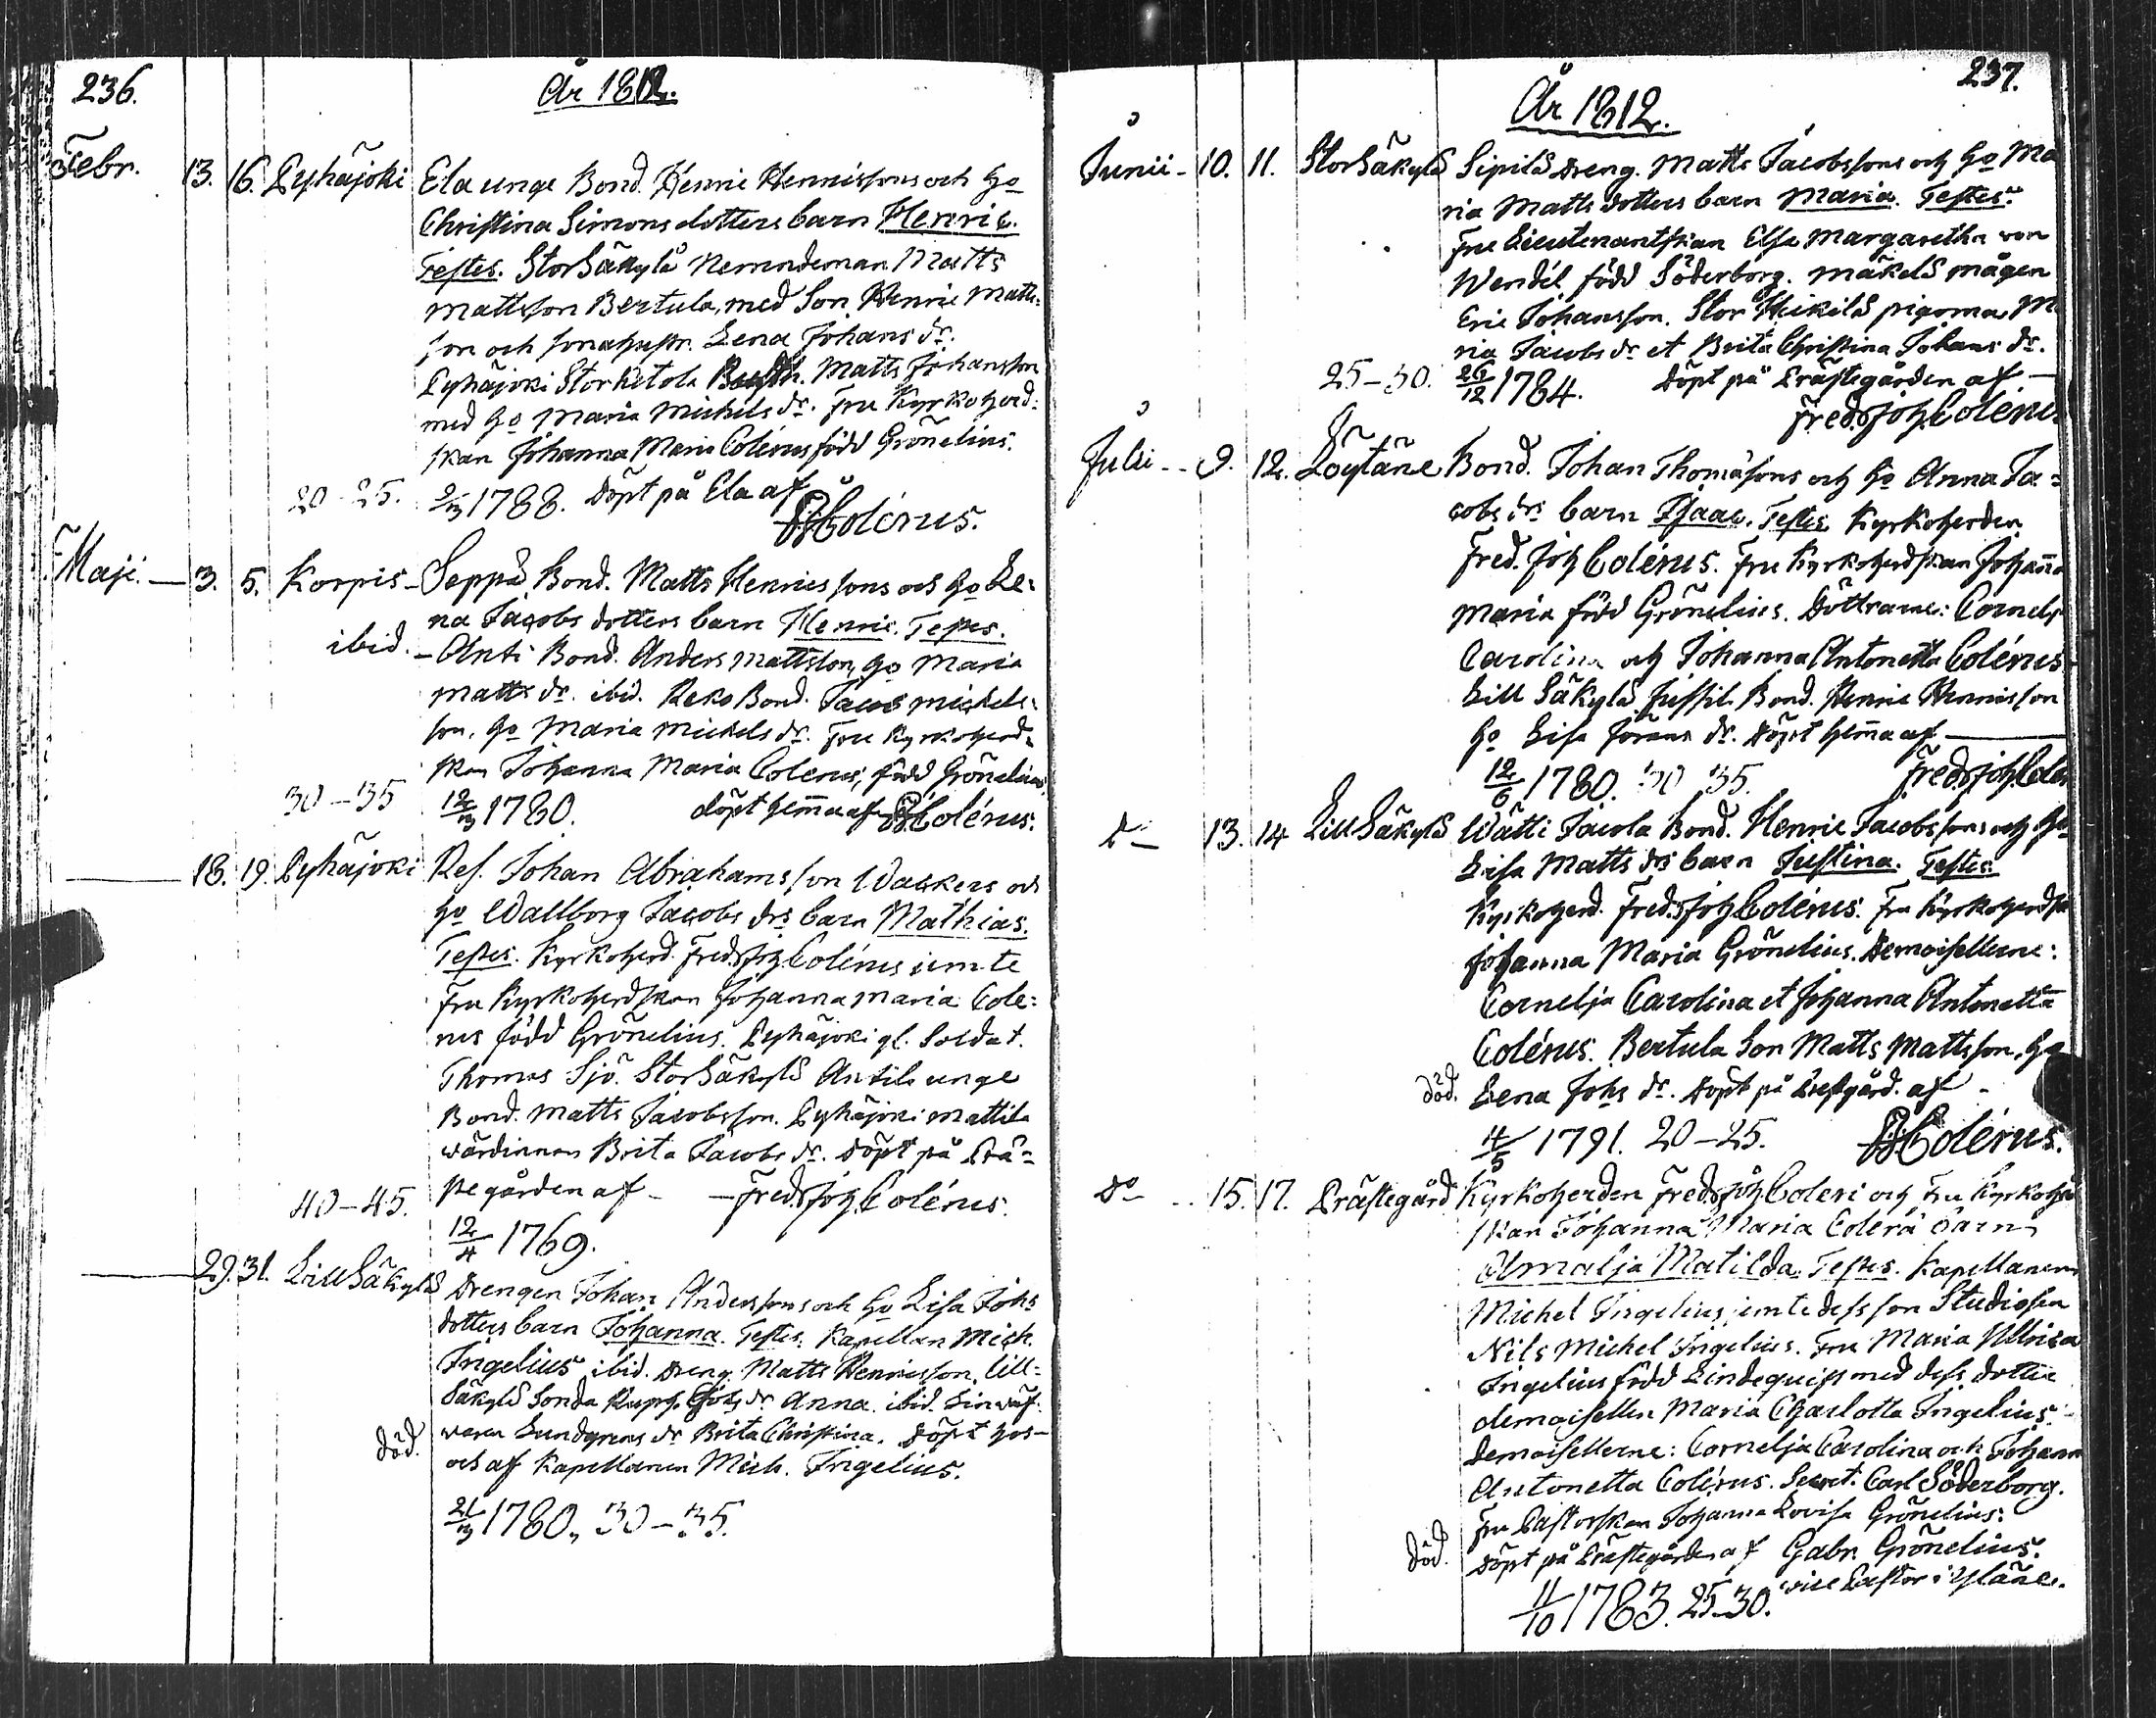 236.
År 1812.
Febr. 13. 16. Pyhäjoki Ela unge Bond. Henric Henricssons och Ho
Christina Simonsdotters barn Henric.
Testes. StorSäkylä Nemndeman Matts
Mattsson Bertula, med Son Henric Matts-
son och sonahustr. Lena Johans dr.
Pyhäjoki Storkitola Matts Johansson
med Ho Maria Michels dr. Fru Kyrkoherd-
skan Johanna Maria Colérus född Grönelius.
20-25. 2/3 1788. Döpt på Ela af
FJColérus.
Maji. — 3. 5. Korpis - Seppä Bond. Matts Henricssons och Ho Le-
na Jacobs dotters barn Henric. Testes.
ibid. - Anti Bond. Anders Mattsson, Ho Maria
Matts dr. ibid. Keko Bond. Jacob Michels-
son, Ho Maria Michels dr. Fru Kyrkoherd-
skan Johanna Maria Colerus, född Grönelius.
30-35 12/3 1780. döpt hemma af FJColérus.
18. 19. Pyhäjoki Ref. Johan Abrahamsson Wackers och
Ho Wallborg Jacobs drs barn Mathias.
Testes. Kyrkoherd. Fred. Joh Colérus jemte
Fru Kyrkoherdskan Johanna Maria Cole-
rus född Grönelius. Pyhäjoki gl. Soldat.
Thomas Sjö. StorSäkylä Antila unge
Bond. Matts Jacobsson. Pyhäjoki Mattila
wärdinnan Brita Jacobs dr. Döpt på Prä-
stegården af - - Fred. Joh. Colérus.
40-45.
12/4 1769.
29. 31. LillSäkylä Drengen Johan Anderssons och Ho Lisa Johs
dotters barn Johanna. Testes. Kapellan Mich.
Ingelius ibid. Dreng. Matts Henricsson, Lill-
Säkylä Sonda Johs dr Anna. ibid. Linwäf-
waren Lundgrens dr Brita Christina. Döpt hos-
död. och af Kapellanen Mich. Ingelius.
21/3 1780. 30-35.
237.
År 1812.
Junii - 10. 11. StorSäkylä Sipilä Dreng. Matts Jacobssons och Ho Ma
ria Matts dotters barn Maria. Testes.
Fru Lieutenantskan Elsa Margaretha von
Wendel född Söderborg. Mäkelä mågen
Eric Johansson. Stor Heikilä pigorna, M
ria Jacobs dr et Brita Christina Johans dr.
25-30. 26/12 1784. Döpt på Prästegården af —
Fred. Joh Coléru
Julii - - 9. 12. Löytäne Bond. Johan Thomassons och Ho Anna Ja-
cobs drs barn Isaac. Testes. Kyrkoherden
Fred. Joh Colérus. Fru Kyrkoherdskan Johanna
Maria född Grönelius. Döttrarne: Cornelj
Carolina och Johanna Antonetta Colérus
Lill Säkylä Jussil. Bond. Henric Henricsson
Ho Lisa Jörans dr. Döpt hemma af —
12/6 1780. 30 35. Fred. Joh. Coler
Do 13. 14 LillSäkylä Wätti Jacola Bond. Henric Jacobssons och Ho
Lisa Matts drs barn Justina. Testes.
Kyrkoherd. Fred. Joh Colérus. Fru Kyrkoherdsk
Johanna Maria Grönelius. Demoisellerne:
Cornelja Carolina et Johanna Antonetta
Colérus. Bertula Son Matts Mattsson, Ho
död. Lena Johs dr. Döpt på Prestgård. af -
4/5 1791. 20-25. FJColérus.
Do - - 15. 17. Prästegård Kyrkoherden Fred. Joh Coleri och Fru Kyrkoherd
skan Johanna Maria Colerä barn
Amalja Matilda. Testes. Kapellanen
Michel Ingelius jemte dess son Studiosen
Nils Michel Ingelius. Fru Maria Ullrica
Ingelius född Lindequist med dess dotter
demoisellen Maria Charlotta Ingelius.
Demoisellerne: Cornelja Carolina och Johann
Antonetta Colérus. Secret. Carl Söderborg.
Fru Pastorskan Johanna Lovisa Grönelius.
död. Döpt på Prästegården af Gabr. Grönelius.
vice Pastor i Yläne.
11/10 1783. 25-30.